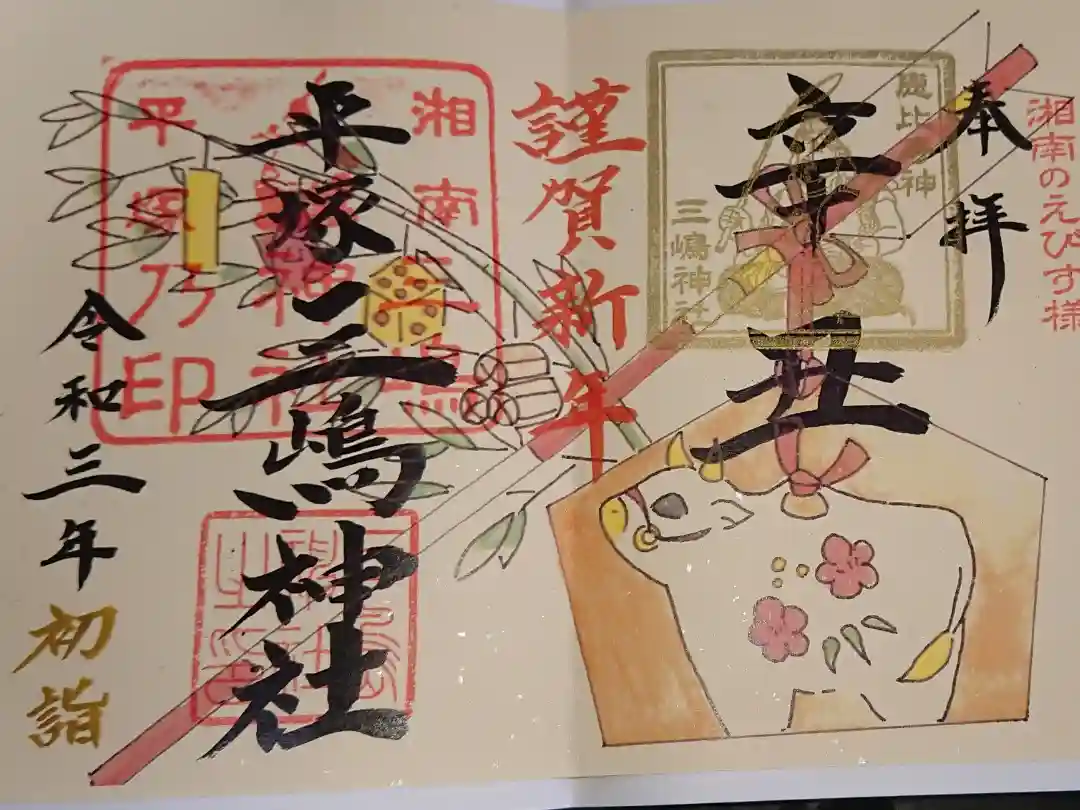 湘南のえびす様
奉拝
辛丑
恵比神
三嶋神社
謹賀新年
平塚三嶋神社
湘南三嶋
神社
平塚乃印
令和三年
初詣